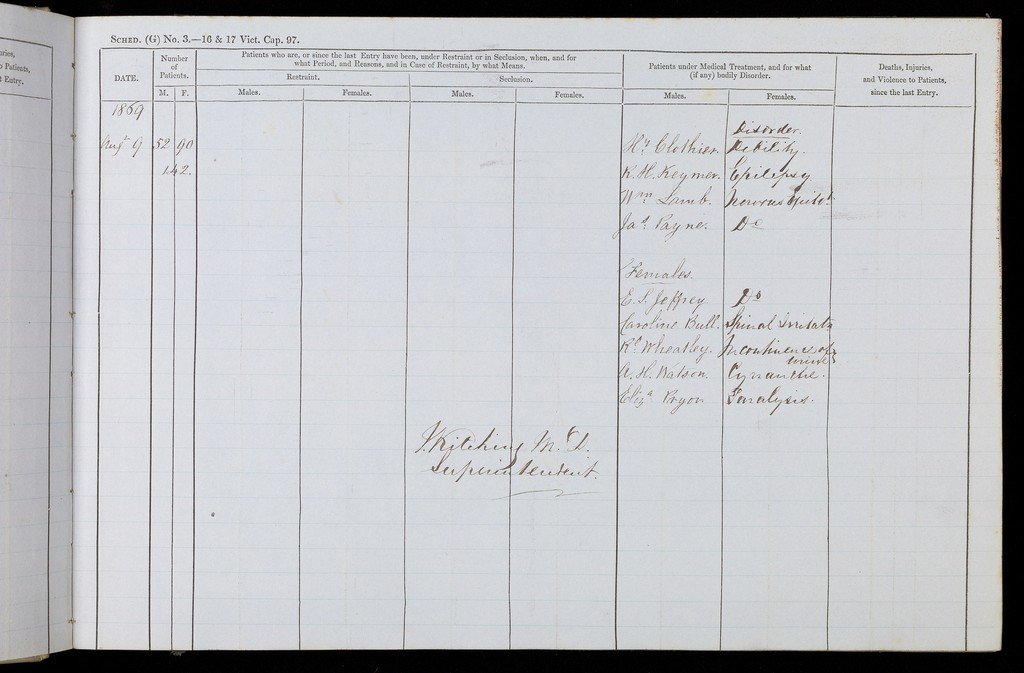 ries,
o Patients,
t Entry.
SCHED. (G) No. 3.—16 & 17 Vict. Cap. 97.
DATE.
Number of Patients.
M. F.
Patients who are, or since the last Entry have been, under Restraint or in Seclusion, when, and for
what Period, and Reasons, and in Case of Restraint, by what Means.
Restraint.
Seclusion.
Males. Females. Males. Females.
Patients under Medical Treatment, and for what
(if any) bodily Disorder.
Males. Females.
Deaths, Injuries,
and Violence to Patients,
since the last Entry.
1869
Disorder.
Augt 9 52 90 Hy Clothier. Debility.
142. R. H. Keymer. Epilepsy
Wm Lamb. Nervous
Jas Payne. Do
Females.
E. S. Jeffrey Do
Caroline Bull. Spinal Irritatn
Rd Wheatley. Incontinence of urine
A. H. Watson. Cynanche.
Eliza Pryor Paralysis.
J. Kitching M.D.
Superintendent.